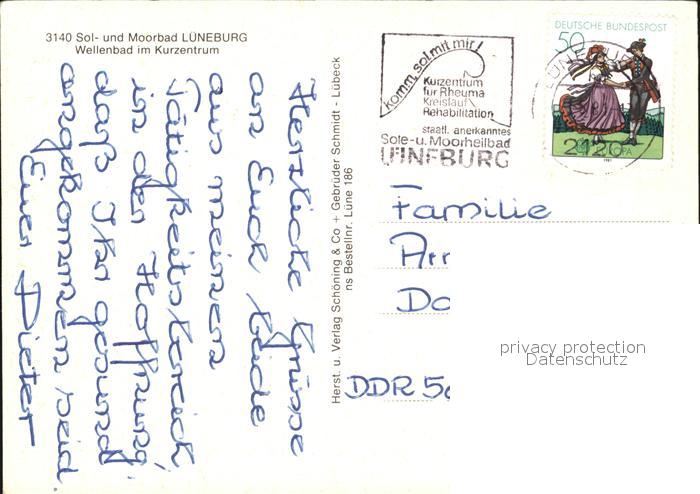 3140 Sol- und Moorbad LÜNEBURG
Wellenbad im Kurzentrum
Herzliche Grüsse
an Euch beide
aus meinem
Tätigkeitsbereich
in der Hoffnung,
daß Ihr gesund
angekommen seid.
Euer Dieter
Herst. u. Verlag Schöning & Co + Gebrüder Schmidt - Lübeck
ns Bestellnr. Lüne 186
komm, sol mit mir!
Kurzentrum
für Rheuma
Kreislauf
Rehabilitation
staatl. anerkanntes
Sole-u. Moorheilbad
LÜNEBURG
DEUTSCHE BUNDESPOST
50
2120
1981
Familie
DDR
privacy protection
Datenschutz